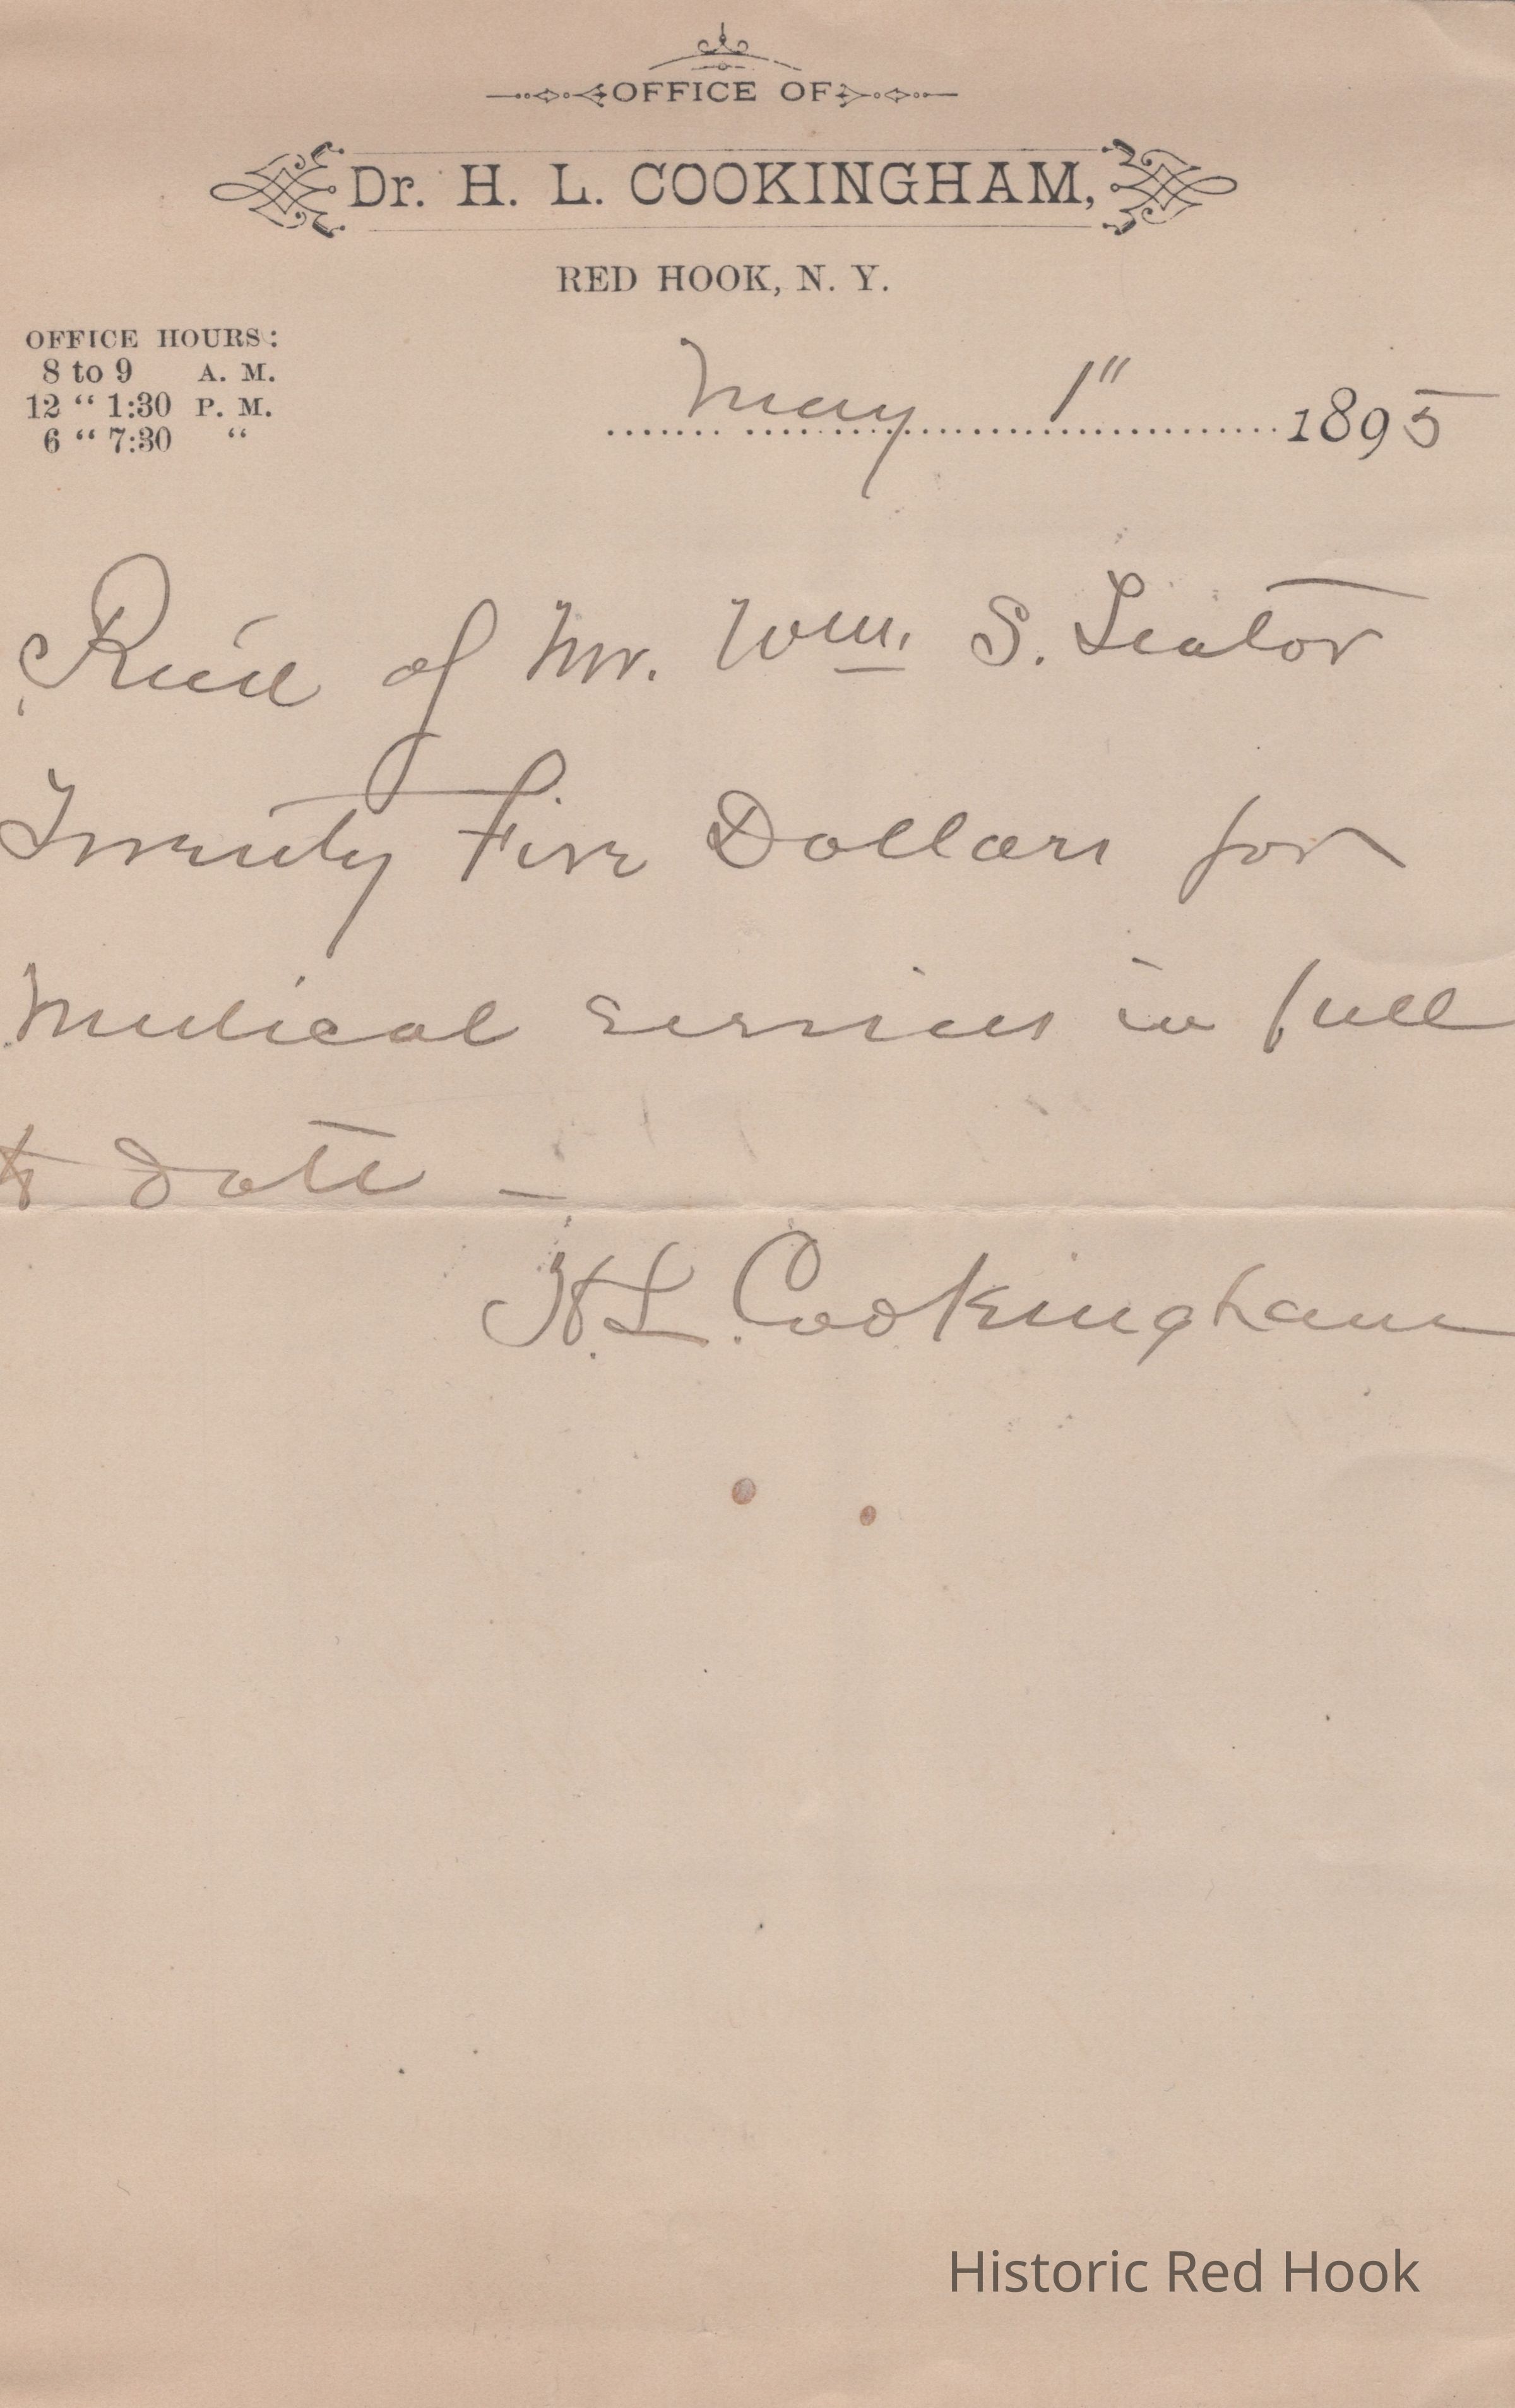 OFFICE OF
Dr. H. L. COOKINGHAM,
RED HOOK, N. Y.
OFFICE HOURS:
8 to 9 A. M.
12 “ 1:30 P. M.
6 “ 7:30 “
May 1" 1895
Rec'd of Mr. Wm. S.
Twenty Five Dollars for
Medical services in full
to date –
H. L. Cookingham
Historic Red Hook